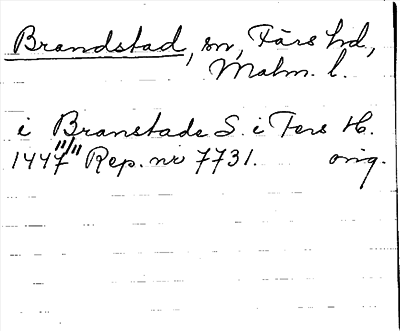 Brandstad, sn, Färs hd,
Malm. l.
i Branstade S. i Fers H.
1447 11/11 Rep. nr 7731. orig.